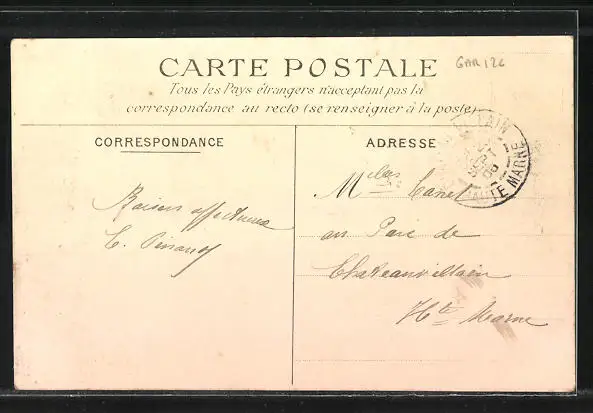 CARTE POSTALE
GAR 126
Tous les Pays étrangers n'acceptant pas la
correspondance au recto (se renseigner à la poste)
CORRESPONDANCE
ADRESSE
HAUTE MARNE
Baisers affectueux
Mlles Canel
au Parc de
Chateauvillain
Hte Marne